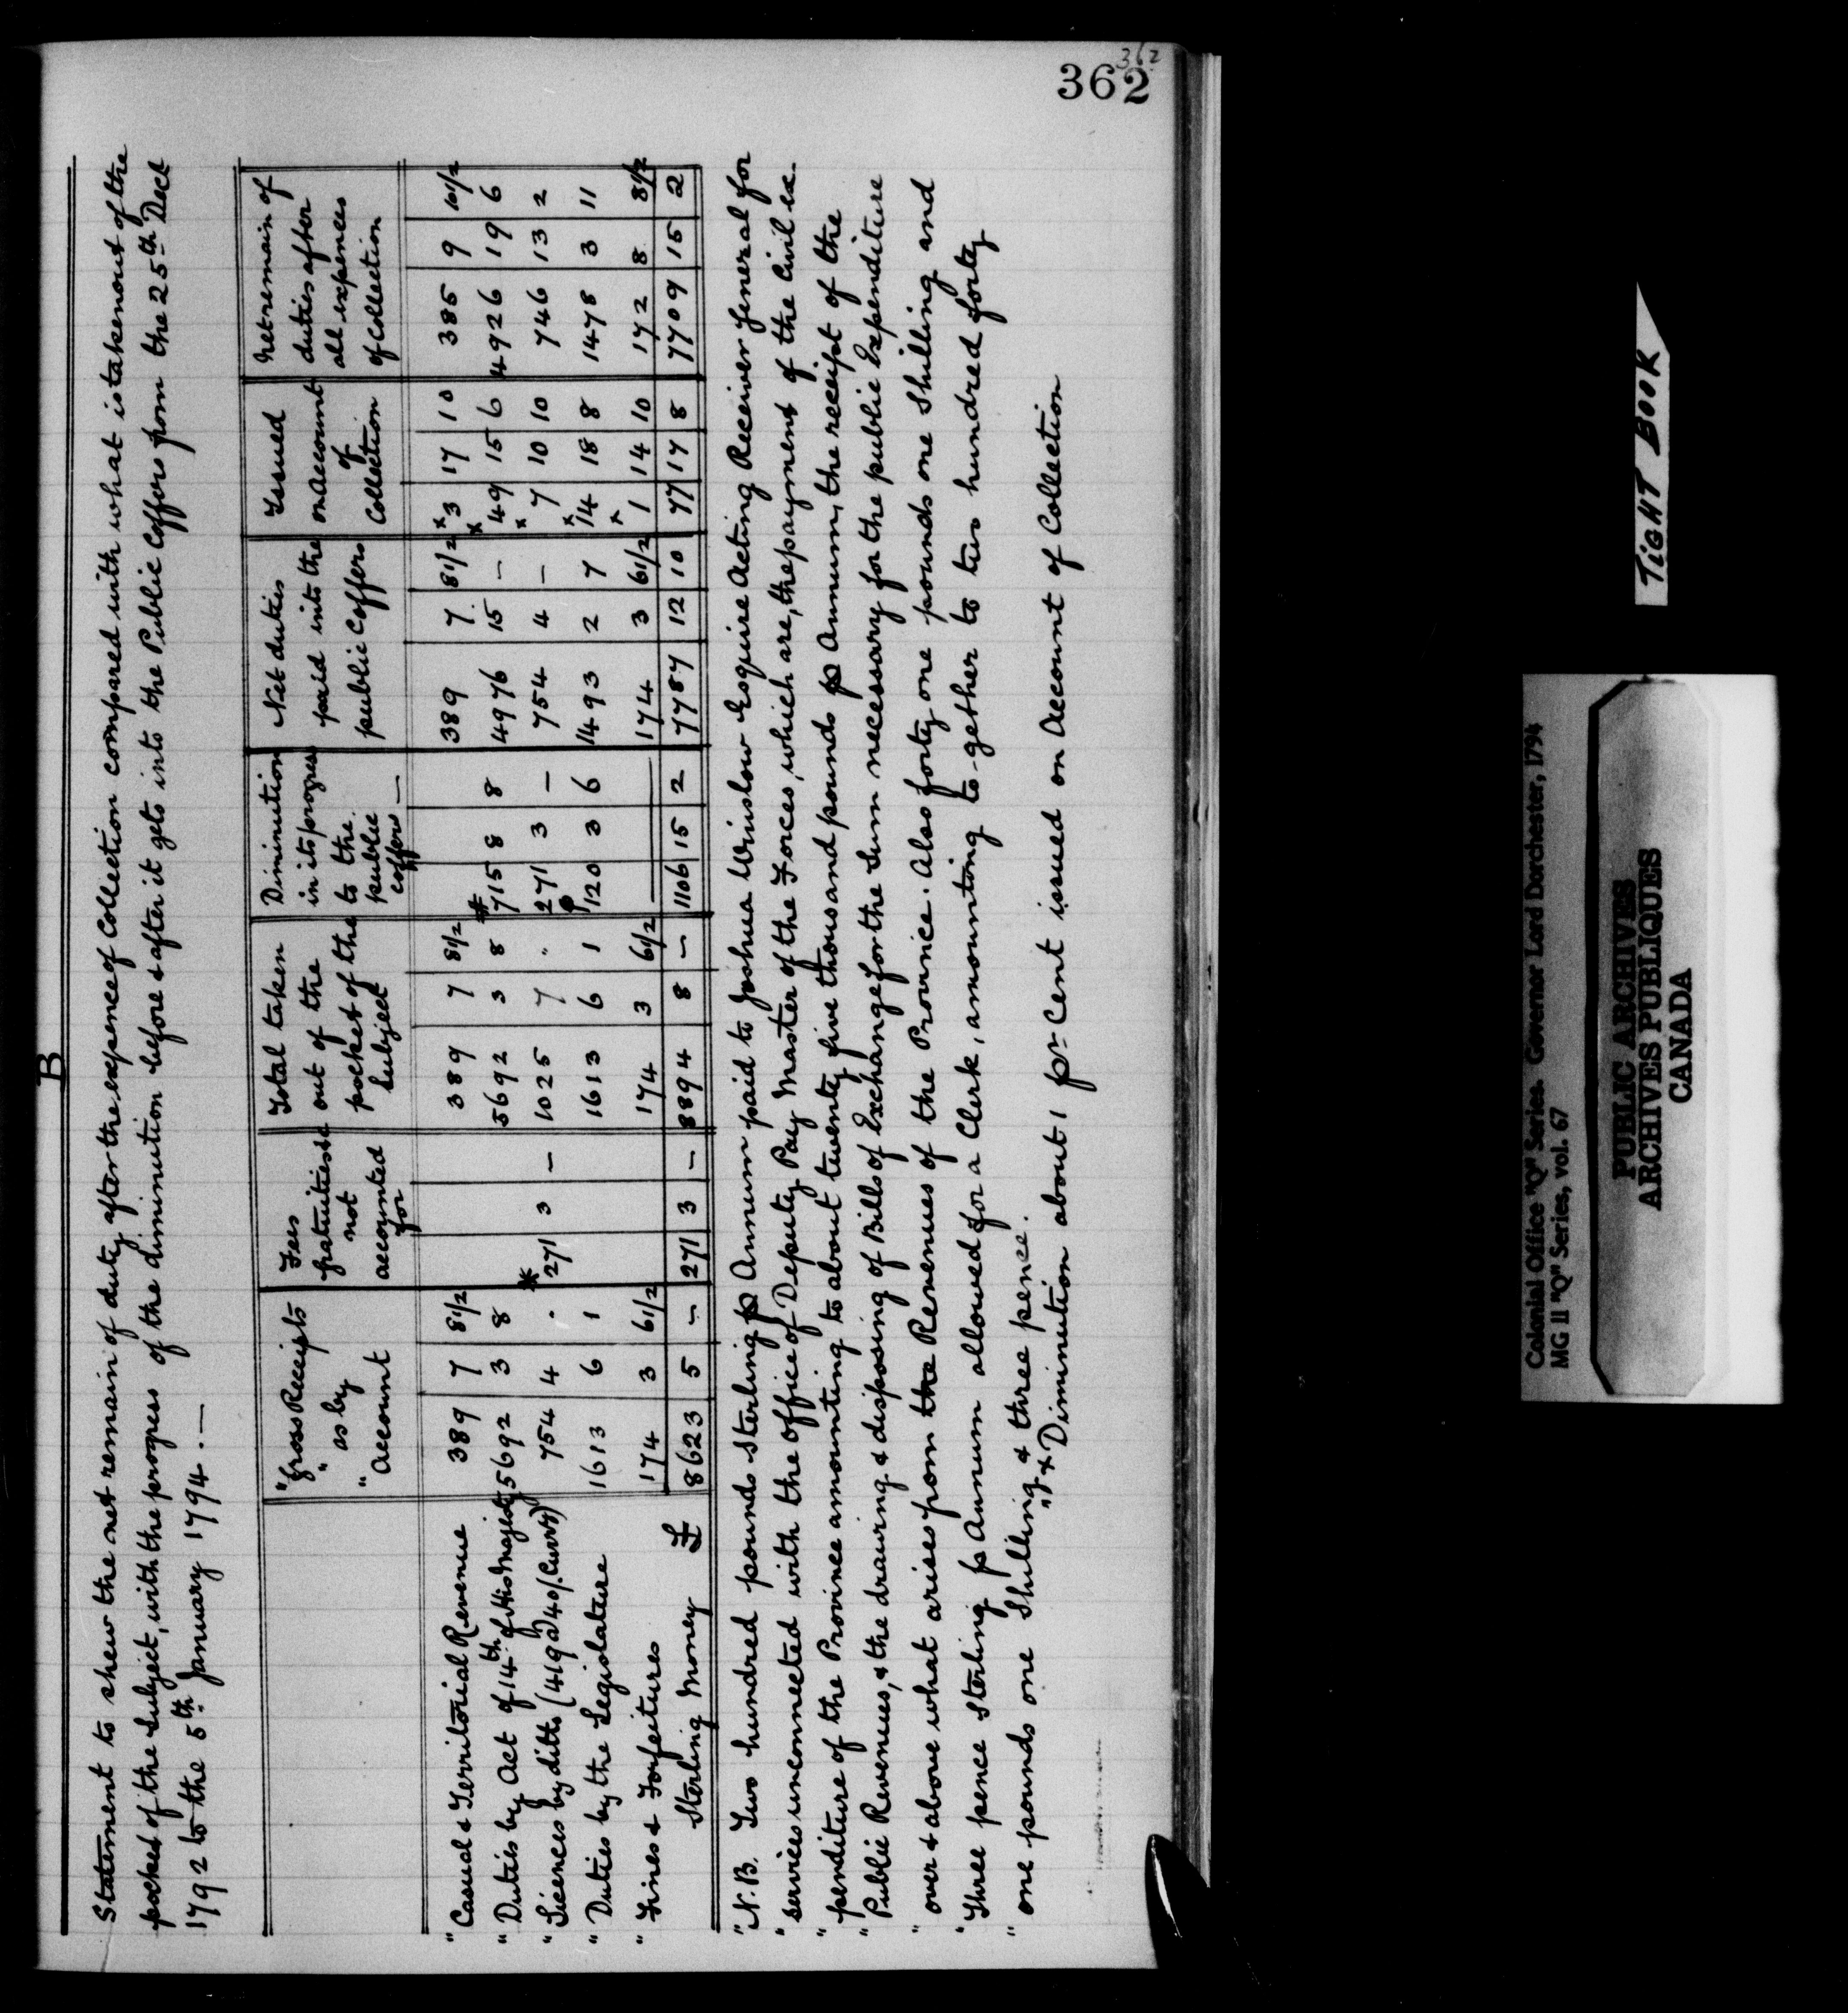 362
362
B
Statement to shew the net remain of duty after the expence of Collection compared with what is taken out of the
pocket of the Subject, with the progress of the diminution before & after it gets into the Public Coffers from the 25th Decr
1792 to the 5th January 1794. —
"Gross Receipts " as by " Account | Fees Gratuities & not accounted for | Total taken out of the pocket of the Subject | Diminution in its progress to the public coffers — | Net duties paid into the public Coffers | Issued on account of Collection | Net remain of duties after all expences of Collection
" Casual & Territorial Revenue | 389 7 8 1/2 | | 389 7 8 1/2 | | 389 7 8 1/2 | x 3 17 10 | 385 9 10 1/2
" Duties by Act of 14th of His Majesty | 5692 3 8 | | 5692 3 8 | # 715 8 8 | 4976 15 — | x 49 15 6 | 4926 19 6
" Licences by ditto (419 @ 40/. Curr'y) | 754 4 . | * 271 3 — | 1025 7 " | 271 3 — | 754 4 — | x 7 10 10 | 746 13 2
" Duties by the Legislature | 1613 6 1 | | 1613 6 1 | 120 3 6 | 1493 2 7 | x 14 18 8 | 1478 3 11
" Fines & Forfeitures | 174 3 6 1/2 | | 174 3 6 1/2 | | 174 3 6 1/2 | x 1 14 10 | 172 8 8 1/2
Sterling Money £ | 8623 5 — | 271 3 — | 8894 8 — | 1106 15 2 | 7787 12 10 | 77 17 8 | 7709 15 2
"N.B. Two hundred pounds Sterling p Annum paid to Joshua Winslow Esquire Acting Receiver General for
" services unconnected with the office of Deputy Pay Master of the Forces, which are, the payment of the Civil ex-
" penditure of the Province amounting to about twenty five thousand pounds p Annum, the receipt of the
" Public Revenues, & the drawing & disposing of Bills of Exchange for the Sum necessary for the public Expenditure
" over & above what arises from the Revenues of the Province. Also forty one pounds one Shilling and
" Three pence Sterling p Annum allowed for a Clerk, amounting to-gether to two hundred forty
" one pounds one Shilling & three pence.
" x Diminution about 1 pr Cent issued on Account of Collection
TIGHT BOOK
Colonial Office "Q" Series. Governor Lord Dorchester, 1794
MG 11 "Q" Series, vol. 67
PUBLIC ARCHIVES
ARCHIVES PUBLIQUES
CANADA